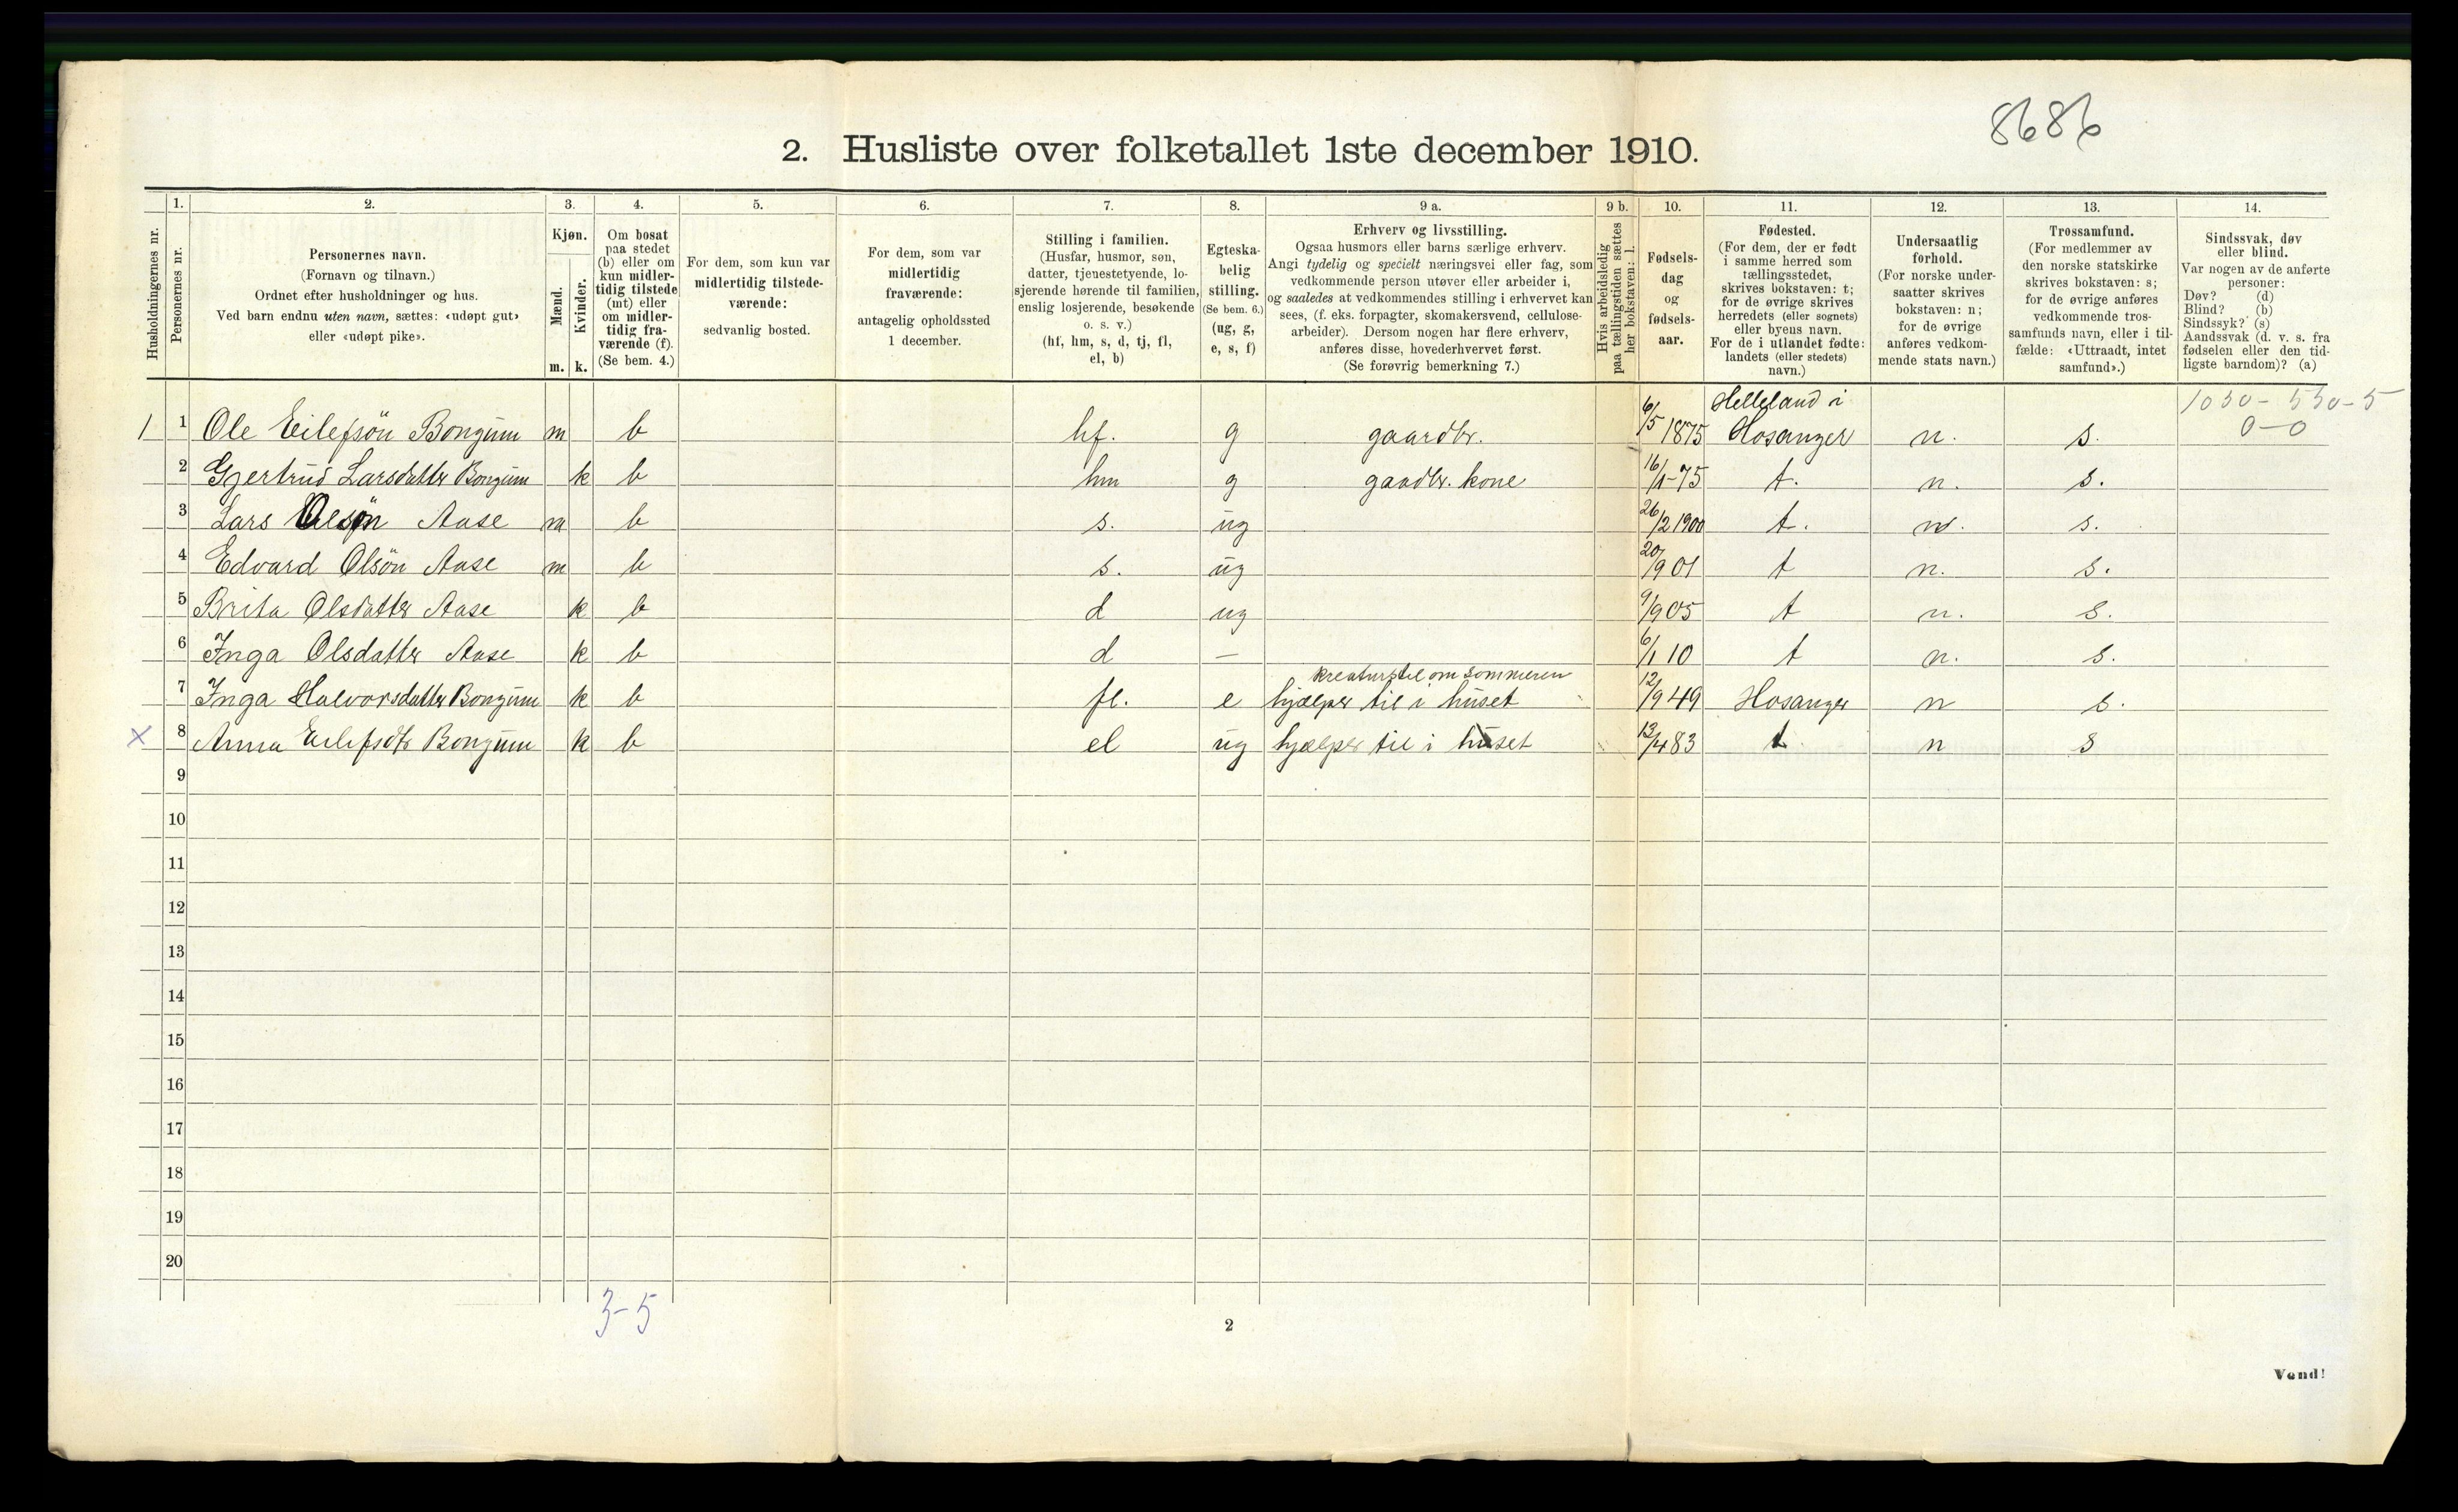 8686
2. Husliste over folketallet 1ste december 1910.
Husholdningernes nr.
1.
Personernes nr.
2.
Personernes navn.
(Fornavn og tilnavn.)
Ordnet efter husholdninger og hus.
Ved barn endnu uten navn, sættes: «udøpt gut»
eller «udøpt pike».
3.
Kjøn.
Mænd.
Kvinder.
m. k.
4.
Om bosat
paa stedet
(b) eller om
kun midler-
tidig tilstede
(mt) eller
om midler-
tidig fra-
værende (f).
(Se bem. 4.)
5.
For dem, som kun var
midlertidig tilstede-
værende:
sedvanlig bosted.
6.
For dem, som var
midlertidig
fraværende:
antagelig opholdssted
1 december.
7.
Stilling i familien.
(Husfar, husmor, søn,
datter, tjenestetyende, lo-
sjerende hørende til familien,
enslig losjerende, besøkende
o. s. v.)
(hf, hm, s, d, tj, fl,
el, b)
8.
Egteska-
belig
stilling.
(Se bem. 6.)
(ug, g,
e, s, f)
9 a.
Erhverv og livsstilling.
Ogsaa husmors eller barns særlige erhverv.
Angi tydelig og specielt næringsvei eller fag, som
vedkommende person utøver eller arbeider i,
og saaledes at vedkommendes stilling i erhvervet kan
sees, (f. eks. forpagter, skomakersvend, cellulose-
arbeider). Dersom nogen har flere erhverv,
anføres disse, hovederhvervet først.
(Se forøvrig bemerkning 7.)
9 b.
Hvis arbeidsledig
paa tællingstiden sættes
her bokstaven: l.
10.
Fødsels-
dag
og
fødsels-
aar.
11.
Fødested.
(For dem, der er født
i samme herred som
tællingsstedet,
skrives bokstaven: t;
for de øvrige skrives
herredets (eller sognets)
eller byens navn.
For de i utlandet fødte:
landets (eller stedets)
navn.)
12.
Undersaatlig
forhold.
(For norske under-
saatter skrives
bokstaven: n;
for de øvrige
anføres vedkom-
mende stats navn.)
13.
Trossamfund.
(For medlemmer av
den norske statskirke
skrives bokstaven: s;
for de øvrige anføres
vedkommende tros-
samfunds navn, eller i til-
fælde: «Uttraadt, intet
samfund».)
14.
Sindssvak, døv
eller blind.
Var nogen av de anførte
personer:
Døv? (d)
Blind? (b)
Sindssyk? (s)
Aandssvak (d. v. s. fra
fødselen eller den tid-
ligste barndom)? (a)
Helleland i 1030 - 530-5
1 1 Ole Eilefsön Bongum m b hf. g gaardbr. 6/5 1875 Hosanger n. s. 0-0
2 Gjertrud Larsdatter Bongum k b hm g gaardbr. kone 16/1-75 t. n. s.
3 Lars Olsøn Aase m b s. ug 26/2 1900 t. n. s.
4 Edvard Olsön Aase m b s. ug 20/9 01 t n. s.
5 Brita Olsdatter Aase k b d ug 9/9 05 t n. s.
6 Inga Olsdatter Aase k b d — 6/1 10 t n. s.
kreaturstel om sommeren
7 Inga Halvorsdatter Bongum k b fl. e hjælper til i huset 12/9 49 Hosanger n s.
X 8 Anna Eilefsdtr Bongum k b el ug hjælper til i huset 13/4 83 t n s
9
10
11
12
13
14
15
16
17
18
19
20
3-5
2
Vend!